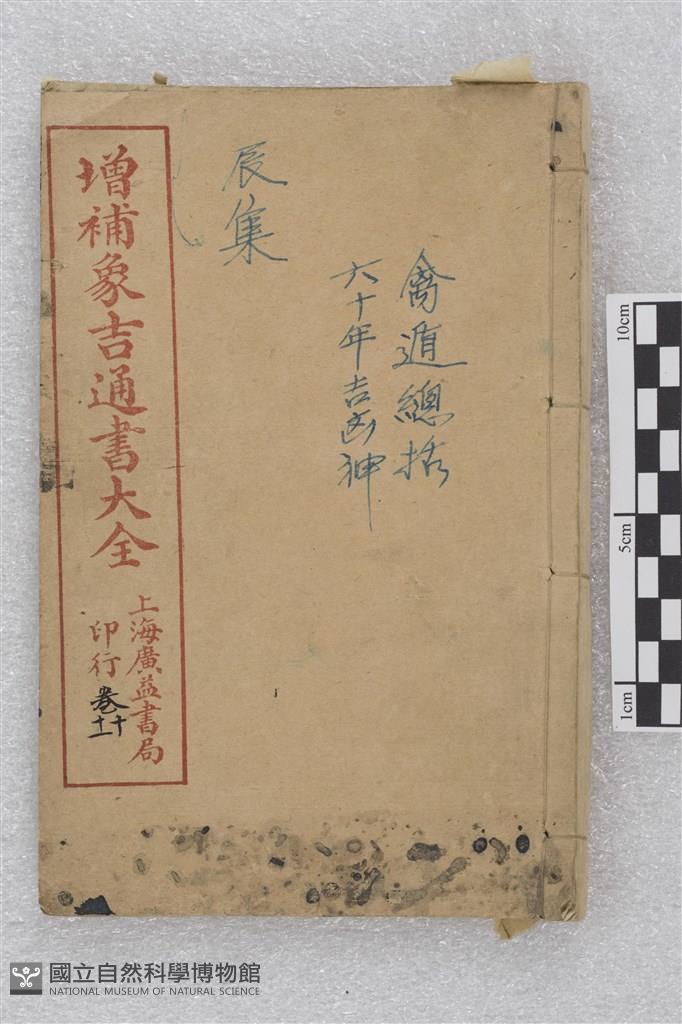 增補象吉通書大全
上海廣益書局
印行
卷十
十一
辰集
禽遁總括
六十年吉凶神
10cm
5cm
1cm
國立自然科學博物館
NATIONAL MUSEUM OF NATURAL SCIENCE